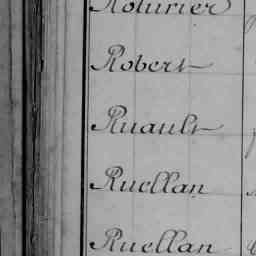 Roturier
Robert
Ruault
Ruellan
Ruellan